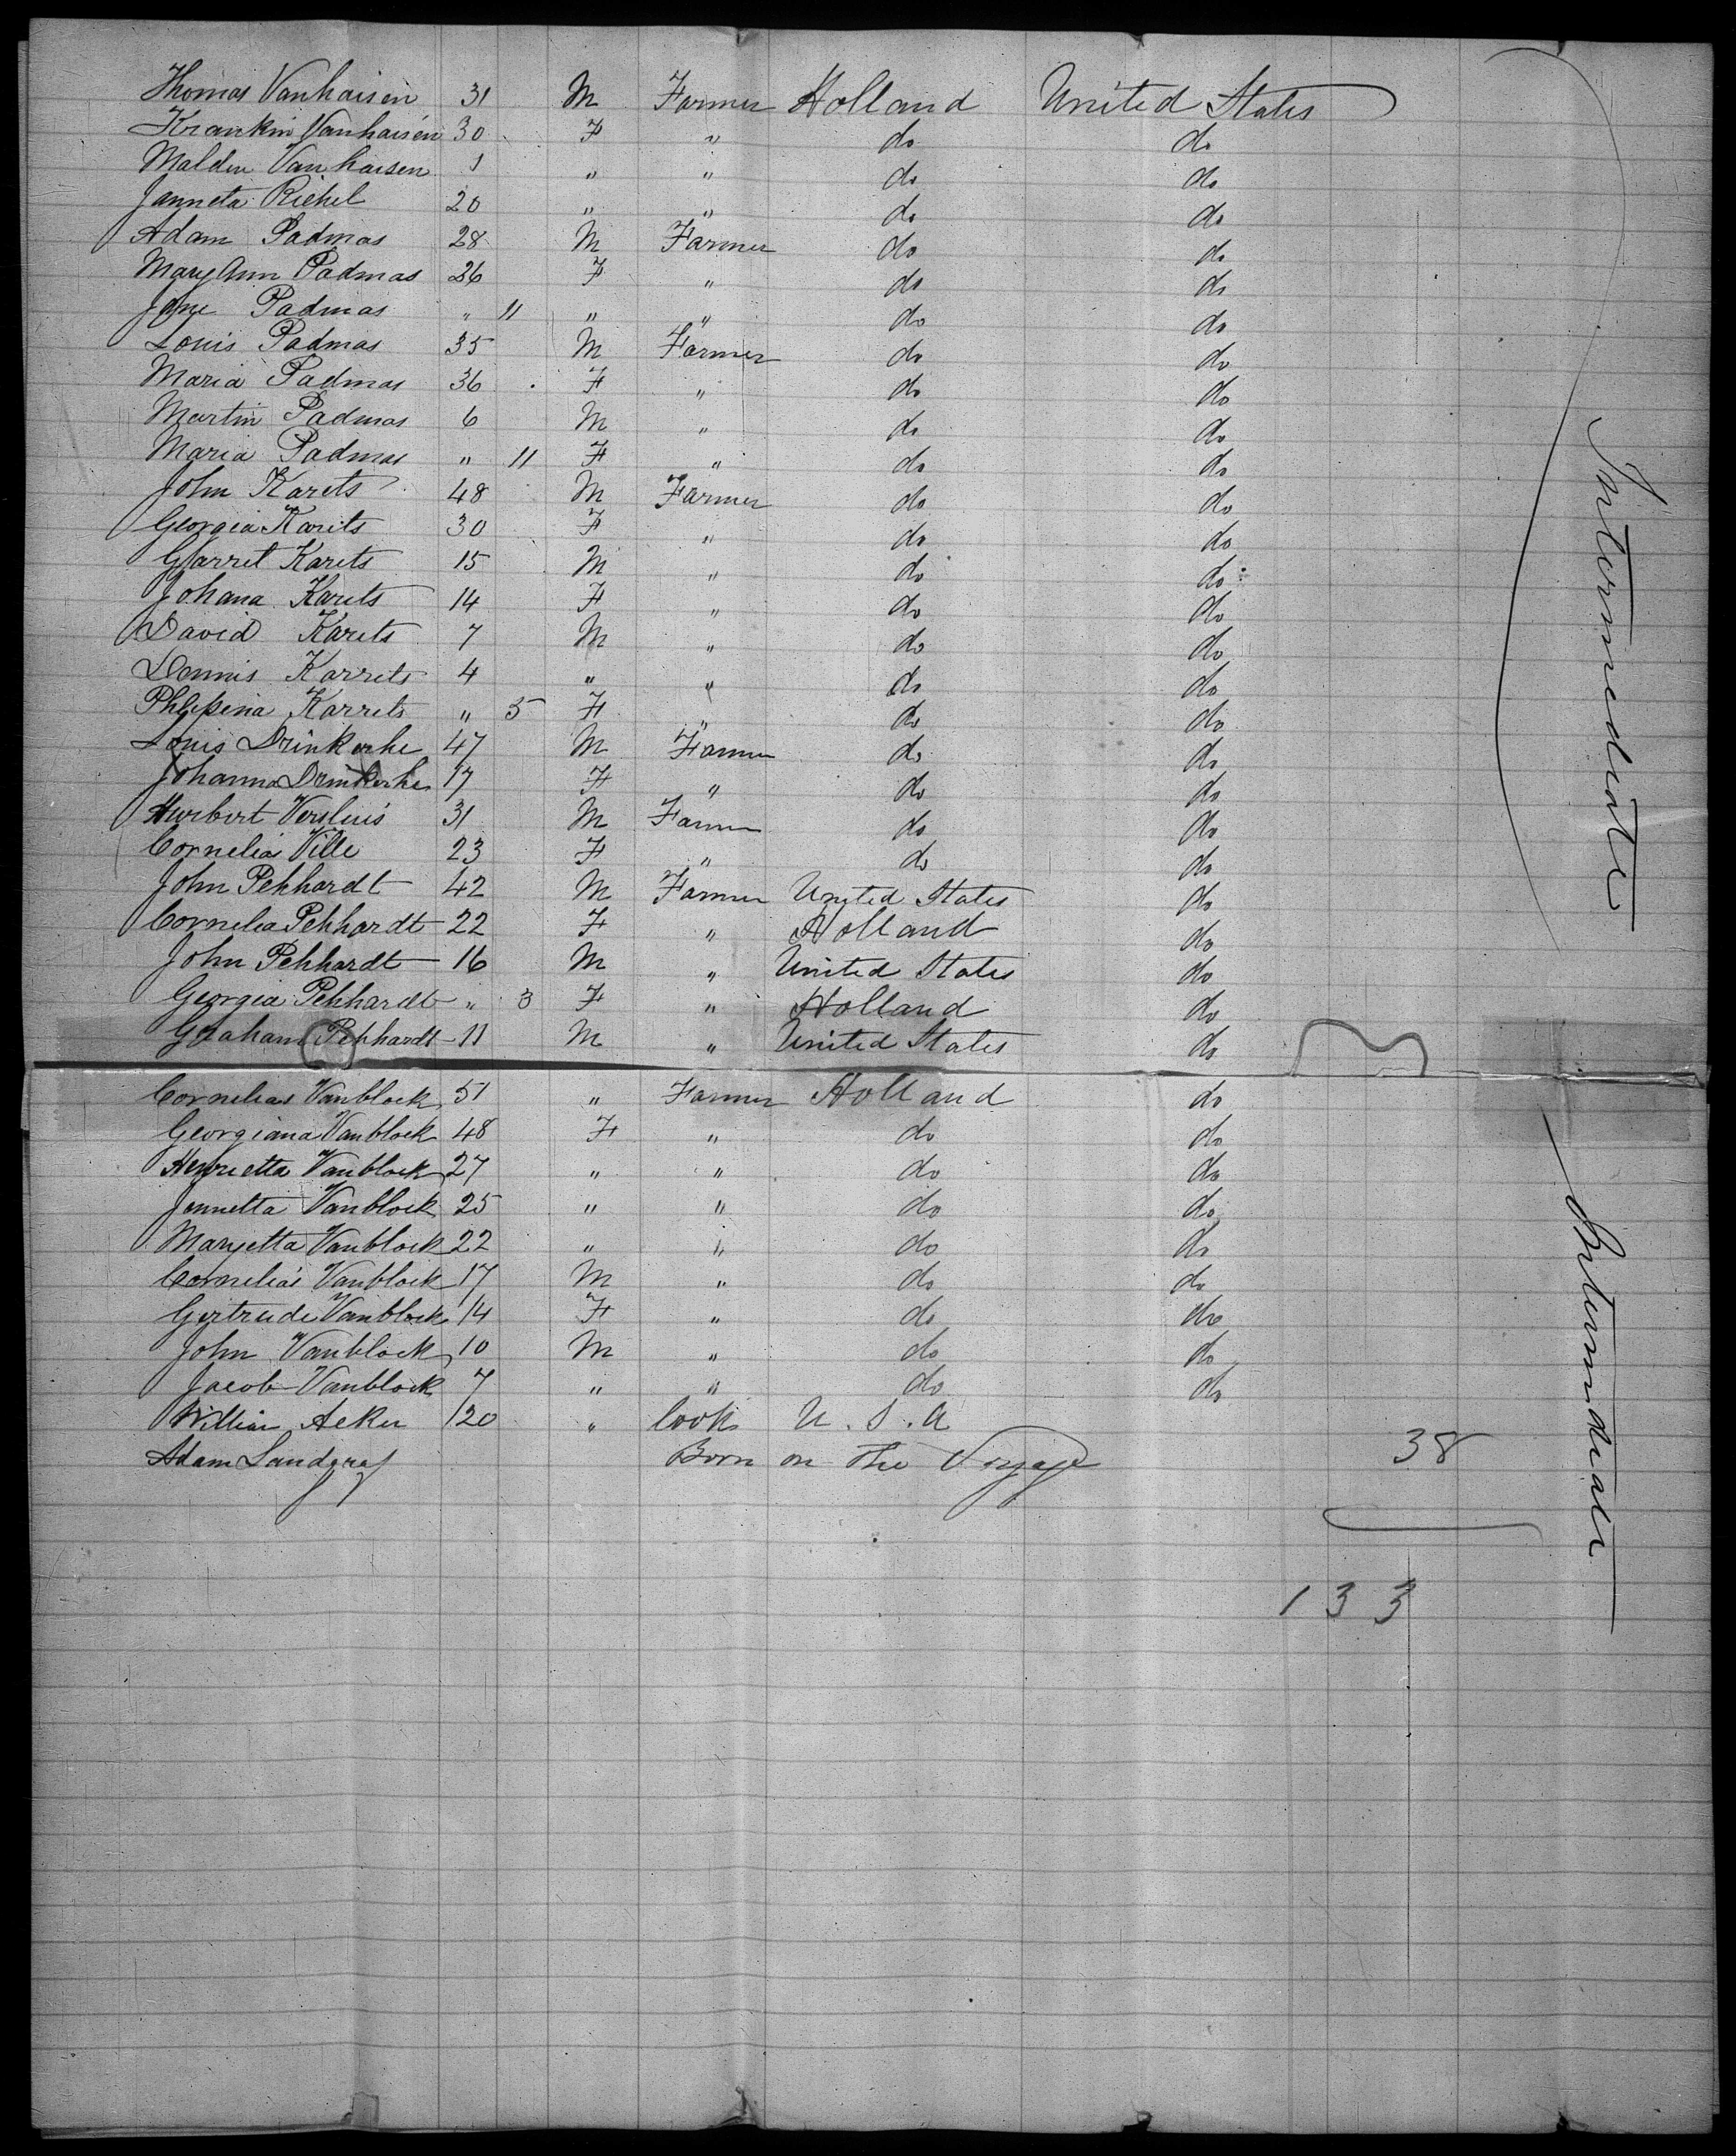 Thomas Vanhaisen 31 M Farmer Holland United States
Krankin Vanhaisen 30 F " do do
Malden Vanhaisen 1 " " do do
Janneta Richel 20 " " do do
Adam Padmos 28 M Farmer do do
Mary Ann Padmos 26 F " do do
Jane Padmas " 11 " " do do
Louis Padmas 35 M Farmer do do
Maria Padmas 36 F " do do
Martin Padmas 6 M " do do
Maria Padmas " 11 F " do do
John Karets 48 M Farmer do do
Georgia Karits 30 F " do do
Garret Karets 15 M " do do
Johana Karets 14 F " do do
David Karets 7 M " do do
Dennis Karrets 4 " " do do
Phlipina Karrets " 5 F " do do
Louis Drinkerhe 47 M Farmer do do
Johanna Drinkerhe 17 F " do do
Hurbert Versluis 31 M Farmer do do
Cornelia Ville 23 F " do do
John Pehhardt 42 M Farmer United States do
Cornelia Pehhardt 22 F " Holland do
John Pehhardt 16 M " United States do
Georgia Pehhardt " 3 F " Holland do
Graham Pehhardt 11 M " United States do
Cornelias Vanblock 51 " Farmer Holland do
Georgiana Vanblock 48 F " do do
Henrietta Vanblock 27 " " do do
Jennetta Vanblock 25 " " do do
Maryetta Vanblock 22 " " do do
Cornelias Vanblock 17 M " do do
Gertrude Vanblock 14 F " do do
John Vanblock 10 M " do do
Jacob Vanblock 7 " " do do
William Acker 20 " Cook U.S.A
Adam Landgraf Born on the Voyage 38
133
Intermediate
Intermediate